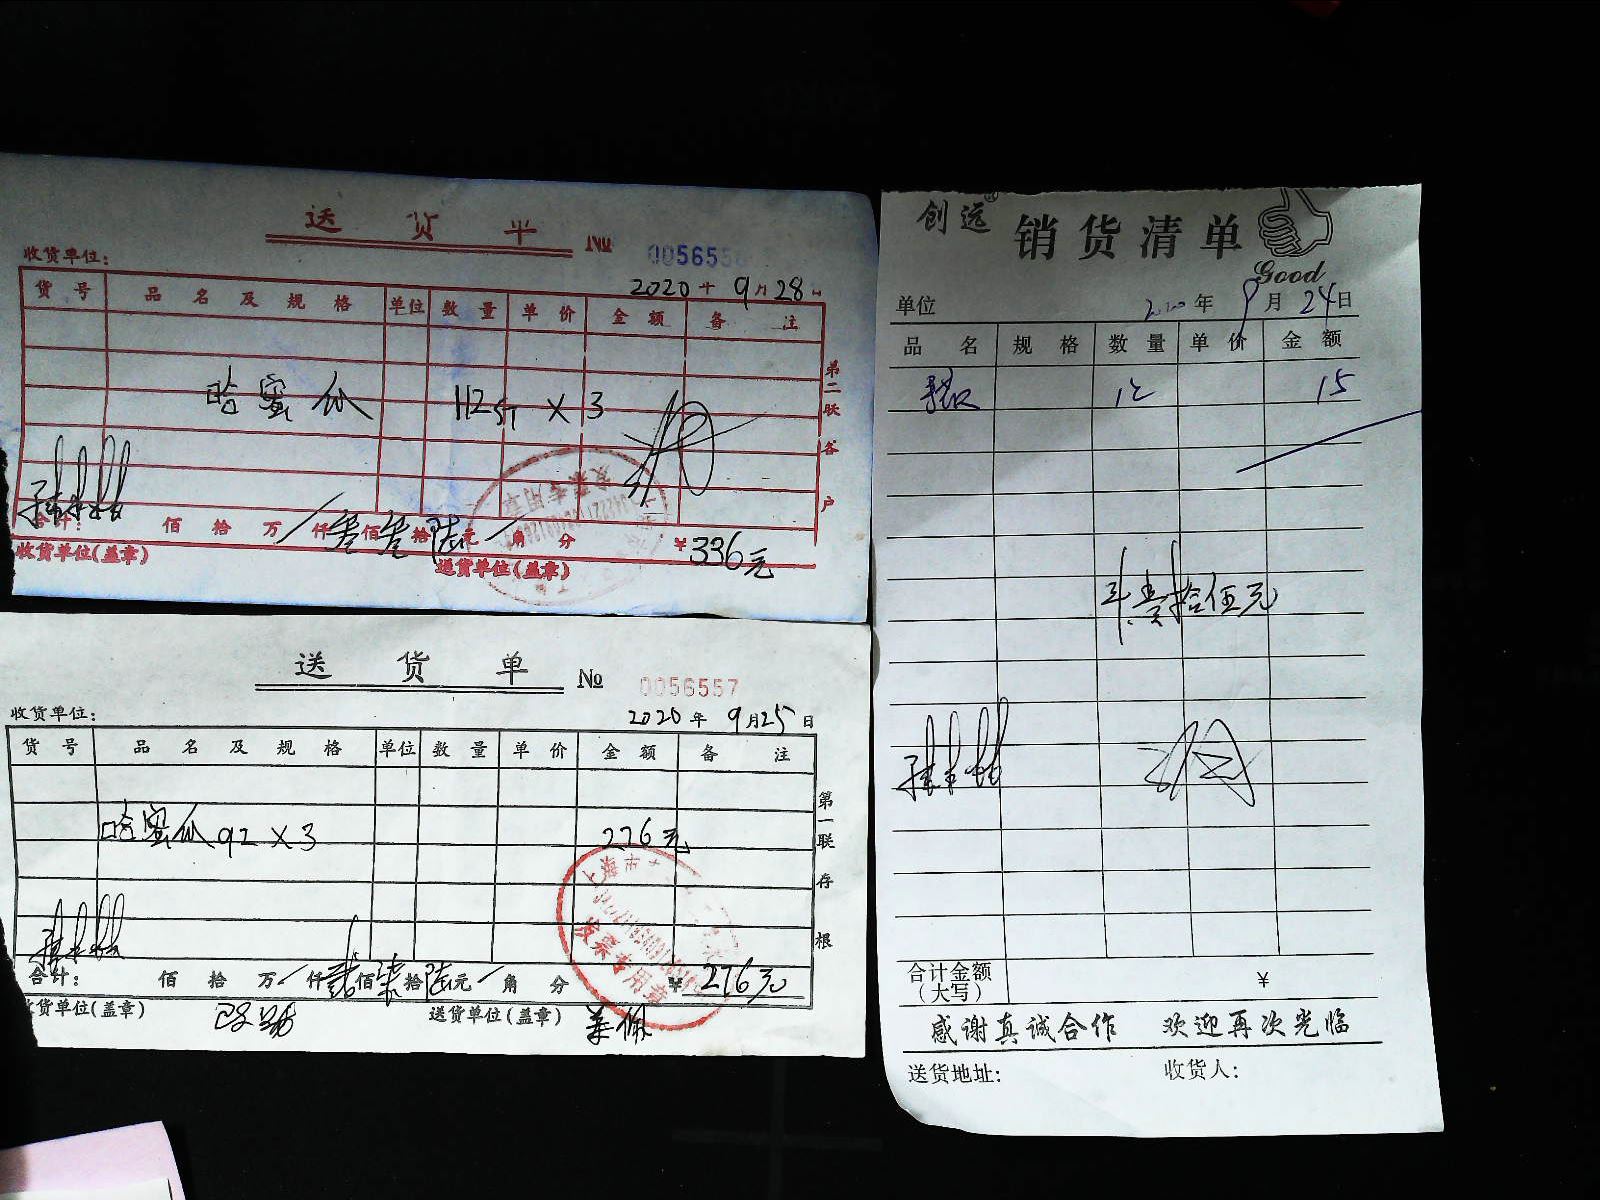 送 货 单 №
收货单位:
2020 年 9月28日
货 号 品 名 及 规 格 单位 数 量 单 价 金 额 备 注
哈蜜瓜 112斤 X 3
第二联 客户
合计: 佰 拾 万 / 仟叁佰叁拾陆元 / 角 分 ¥336元
收货单位(盖章) 送货单位(盖章)
发票专用章
送 货 单 № 0056557
收货单位: 2020 年 9月25日
货 号 品 名 及 规 格 单位 数 量 单 价 金 额 备 注
哈蜜瓜 92 X 3 276元
第一联 存根
上海市
发票专用章
合计: 佰 拾 万 / 仟贰佰柒拾陆元 / 角 分 ¥276元
收货单位(盖章) 送货单位(盖章)
创远 销货清单
Good
单位 2020 年 9 月 24日
品 名 规 格 数 量 单 价 金 额
15
壹拾伍元
合计金额 ¥
(大写)
感谢真诚合作 欢迎再次光临
送货地址: 收货人: